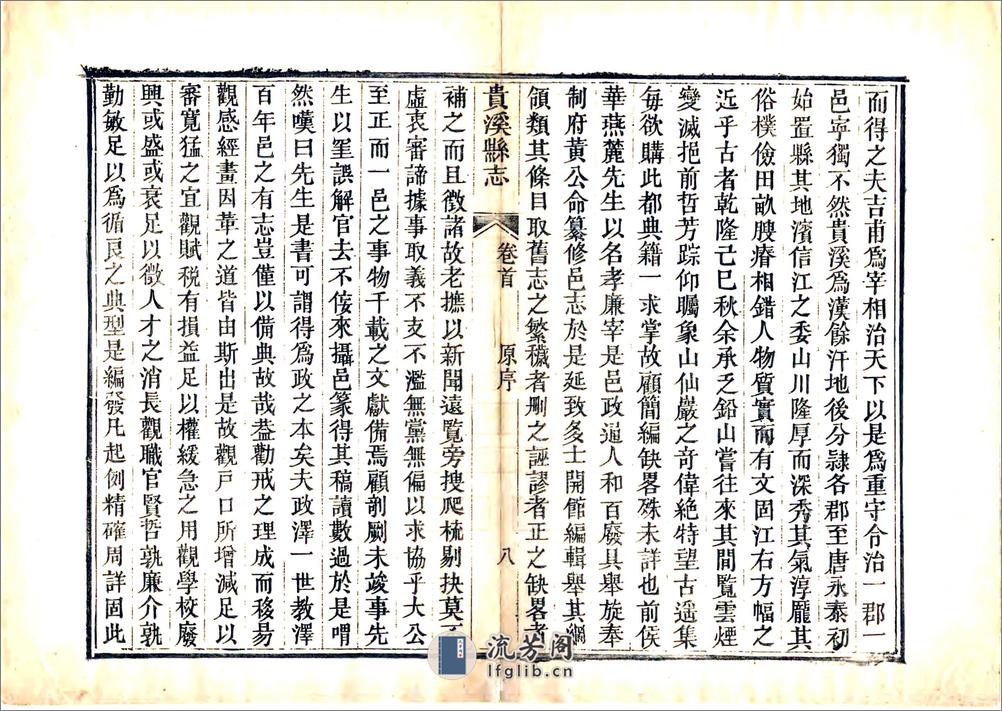 而得之夫吉甫爲宰相治天下以是爲重守令治一郡一
邑寧獨不然貴溪爲漢餘汗地後分隷各郡至唐永泰初
始置縣其地濱信江之委山川隆厚而深秀其氣淳龎其
俗樸儉田畝腴瘠相錯人物質實而有文固江右方幅之
近乎古者乾隆己巳秋余承乏鉛山嘗往來其間覽雲煙
變滅挹前哲芳踪仰矚象山仙巖之奇偉絶特望古遥集
毎欲購此都典籍一求掌故顧簡編缺畧殊未詳也前侯
華燕麓先生以名孝廉宰是邑政通人和百廢具舉旋奉
制府黄公命纂修邑志於是延致多士開館編輯舉其綱
領類其條目取舊志之繁穢者刪之誣謬者正之缺畧者
貴溪縣志 卷首 原序 八
補之而且徵諸故老摭以新聞遠覧旁搜爬梳剔抉莫不
虚衷審諦據事取義不支不濫無黨無偏以求協乎大公
至正而一邑之事物千載之文獻備焉顧剞劂未竣事先
生以罣誤解官去不侫來攝邑篆得其稿讀數過於是喟
然嘆曰先生是書可謂得爲政之本矣夫政澤一世教澤
百年邑之有志豈僅以備典故哉葢勸戒之理成而移易
觀感經畫因革之道皆由斯出是故觀戸口所增減足以
審寛猛之宜觀賦税有損益足以權緩急之用觀學校廢
興或盛或衰足以徵人才之消長觀職官賢哲孰廉介孰
勤敏足以爲循良之典型是編發凡起例精確周詳固此
流芳閣
lfglib.cn